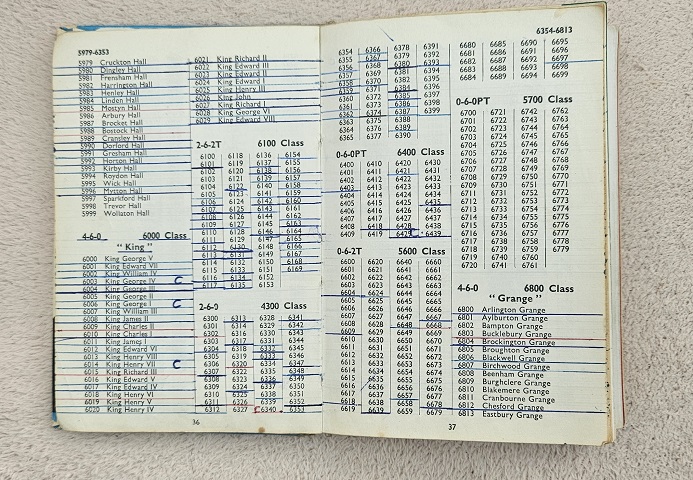 5979-6353
5979 Cruckton Hall
5980 Dingley Hall
5981 Frensham Hall
5982 Harrington Hall
5983 Henley Hall
5984 Linden Hall
5985 Mostyn Hall
5986 Arbury Hall
5987 Brocket Hall
5988 Bostock Hall
5989 Cransley Hall
5990 Dorford Hall
5991 Gresham Hall
5992 Horton Hall
5993 Kirby Hall
5994 Roydon Hall
5995 Wick Hall
5996 Mytton Hall
5997 Sparkford Hall
5998 Trevor Hall
5999 Wollaton Hall
4-6-0 6000 Class
"King"
6000 King George V
6001 King Edward VII
6002 King William IV
6003 King George IV C
6004 King George III
6005 King George II
6006 King George I C
6007 King William III
6008 King James II
6009 King Charles II
6010 King Charles I
6011 King James I
6012 King Edward VI
6013 King Henry VIII
6014 King Henry VII C
6015 King Richard III
6016 King Edward V
6017 King Edward IV
6018 King Henry VI
6019 King Henry V
6020 King Henry IV
6021 King Richard II
6022 King Edward III
6023 King Edward II
6024 King Edward I
6025 King Henry III
6026 King John
6027 King Richard I
6028 King George VI
6029 King Edward VIII
2-6-2T 6100 Class
6100 6118 6136 6154
6101 6119 6137 6155
6102 6120 6138 6156
6103 6121 6139 6157
6104 6122 6140 6158
6105 6123 6141 6159
6106 6124 6142 6160
6107 6125 6143 6161
6108 6126 6144 6162
6109 6127 6145 6163
6110 6128 6146 6164
6111 6129 6147 6165
6112 6130 6148 6166
6113 6131 6149 6167
6114 6132 6150 6168
6115 6133 6151 6169
6116 6134 6152
6117 6135 6153
2-6-0 4300 Class
6300 6313 6328 6341
6301 6314 6329 6342
6302 6316 6330 6343
6303 6317 6331 6344
6304 6318 6332 6345
6305 6319 6333 6346
6306 6320 6334 6347
6307 6322 6335 6348
6308 6323 6336 6349
6309 6324 6337 6350
6310 6325 6338 6351
6311 6326 6339 6352
6312 6327 6340 6353
36
6354-6813
6354 6366 6378 6391
6355 6367 6379 6392
6356 6368 6380 6393
6357 6369 6381 6394
6358 6370 6382 6395
6359 6371 6384 6396
6360 6372 6385 6397
6361 6373 6386 6398
6362 6374 6387 6399
6363 6375 6388
6364 6376 6389
6365 6377 6390
0-6-0PT 6400 Class
6400 6410 6420 6430
6401 6411 6421 6431
6402 6412 6422 6432
6403 6413 6423 6433
6404 6414 6424 6434
6405 6415 6425 6435
6406 6416 6426 6436
6407 6417 6427 6437
6408 6418 6428 6438
6409 6419 6429 6439
0-6-2T 5600 Class
6600 6620 6640 6660
6601 6621 6641 6661
6602 6622 6642 6662
6603 6623 6643 6663
6604 6624 6644 6664
6605 6625 6645 6665
6606 6626 6646 6666
6607 6627 6647 6667
6608 6628 6648 6668
6609 6629 6649 6669
6610 6630 6650 6670
6611 6631 6651 6671
6612 6632 6652 6672
6613 6633 6653 6673
6614 6634 6654 6674
6615 6635 6655 6675
6616 6636 6656 6676
6617 6637 6657 6677
6618 6638 6658 6678
6619 6639 6659 6679
6680 6685 6690 6695
6681 6686 6691 6696
6682 6687 6692 6697
6683 6688 6693 6698
6684 6689 6694 6699
0-6-0PT 5700 Class
6700 6721 6742 6762
6701 6722 6743 6763
6702 6723 6744 6764
6703 6724 6745 6765
6704 6725 6746 6766
6705 6726 6747 6767
6706 6727 6748 6768
6707 6728 6749 6769
6708 6729 6750 6770
6709 6730 6751 6771
6710 6731 6752 6772
6711 6732 6753 6773
6712 6733 6754 6774
6713 6734 6755 6775
6714 6735 6756 6776
6715 6736 6757 6777
6716 6737 6758 6778
6717 6738 6759 6779
6718 6739 6760
6719 6740 6761
6720 6741
4-6-0 6800 Class
"Grange"
6800 Arlington Grange
6801 Aylburton Grange
6802 Bampton Grange
6803 Bucklebury Grange
6804 Brockington Grange
6805 Broughton Grange
6806 Blackwell Grange
6807 Birchwood Grange
6808 Beenham Grange
6809 Burghclere Grange
6810 Blakemere Grange
6811 Cranbourne Grange
6812 Chesford Grange
6813 Eastbury Grange
37